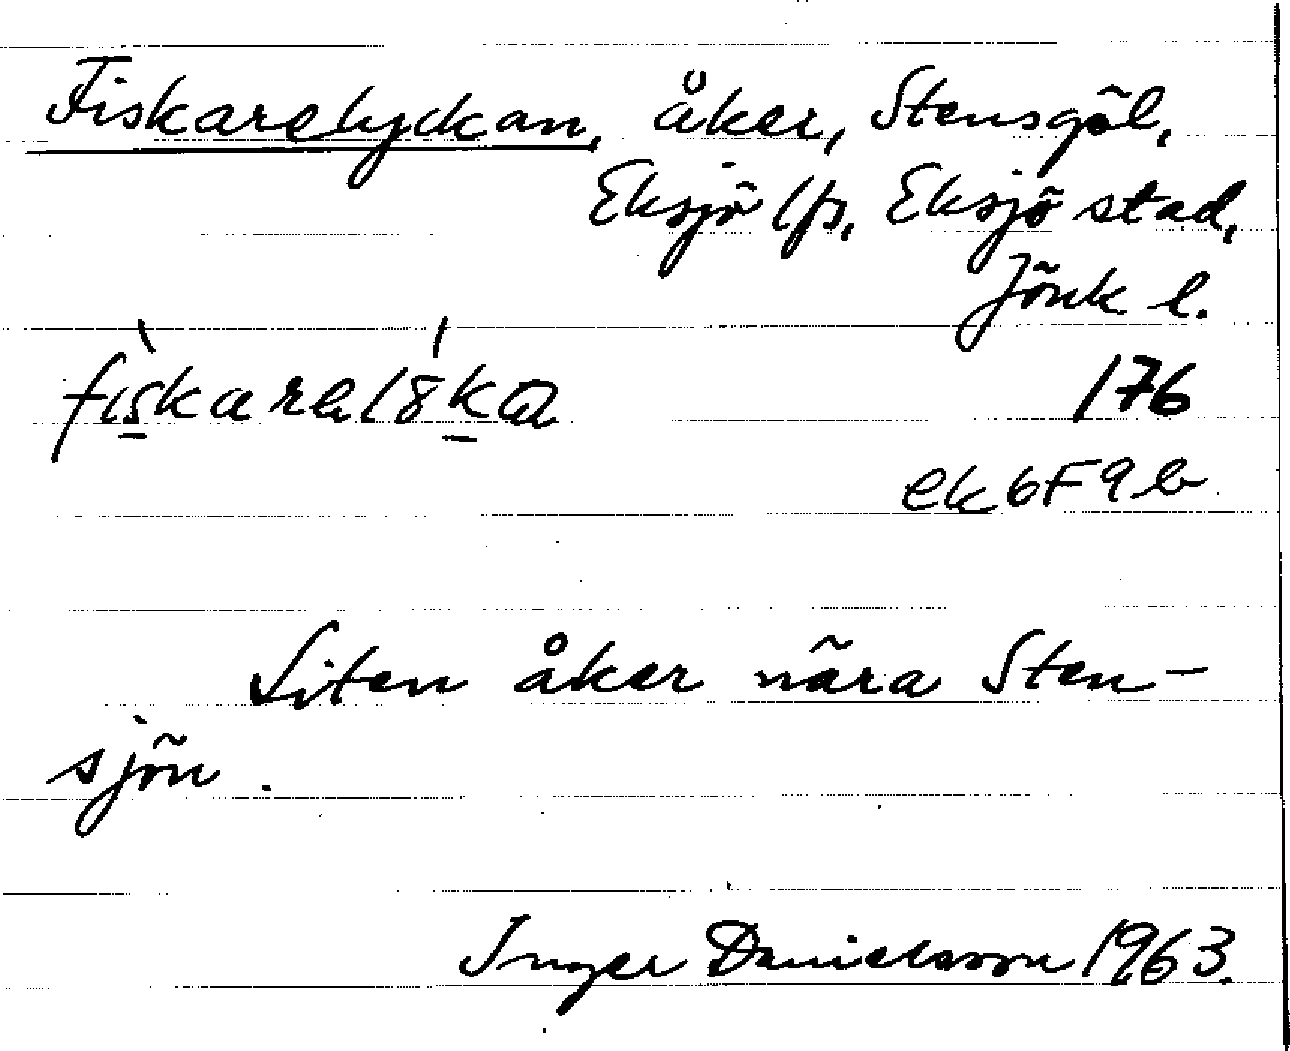 Fiskarelyckan, åker, Stensgöl,
Eksjö lfs, Eksjö stad,
Jönk l.
176
ek 6F9b
Liten åker nära Sten-
sjön.
Inger Danielsson 1963.